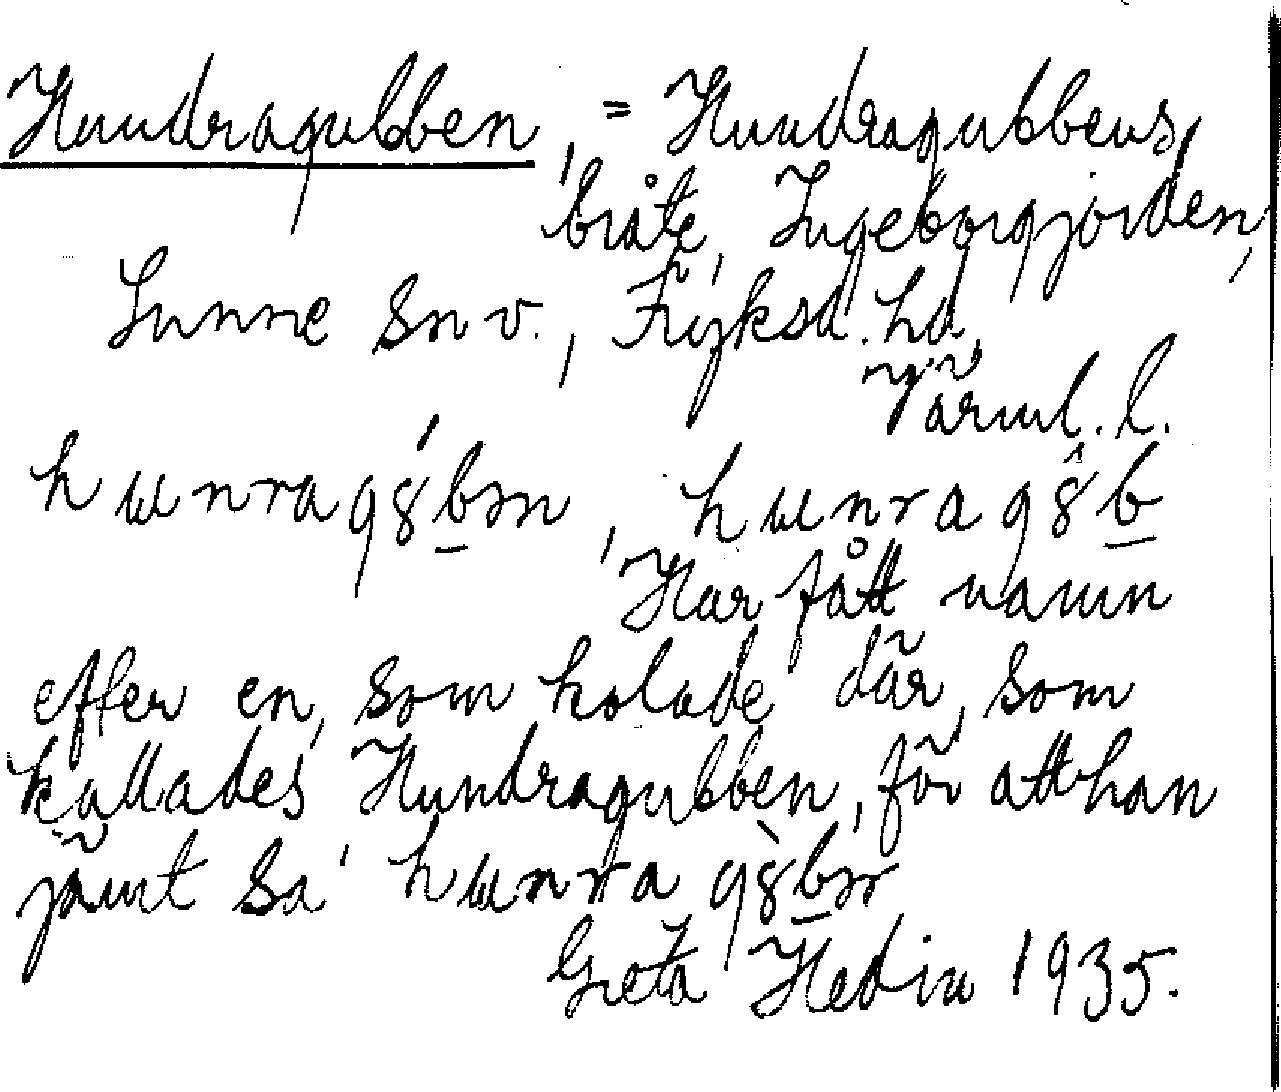 Hundragubben, = Hundragubbens
bråte, Ingeborgjorden,
Sunne sn v., Fryksd. hd,
Värml. l.
Har fått namn
efter en, som kolade där, som
kallades Hundragubben, för att han
jämt sa'
Greta Hedin 1935.